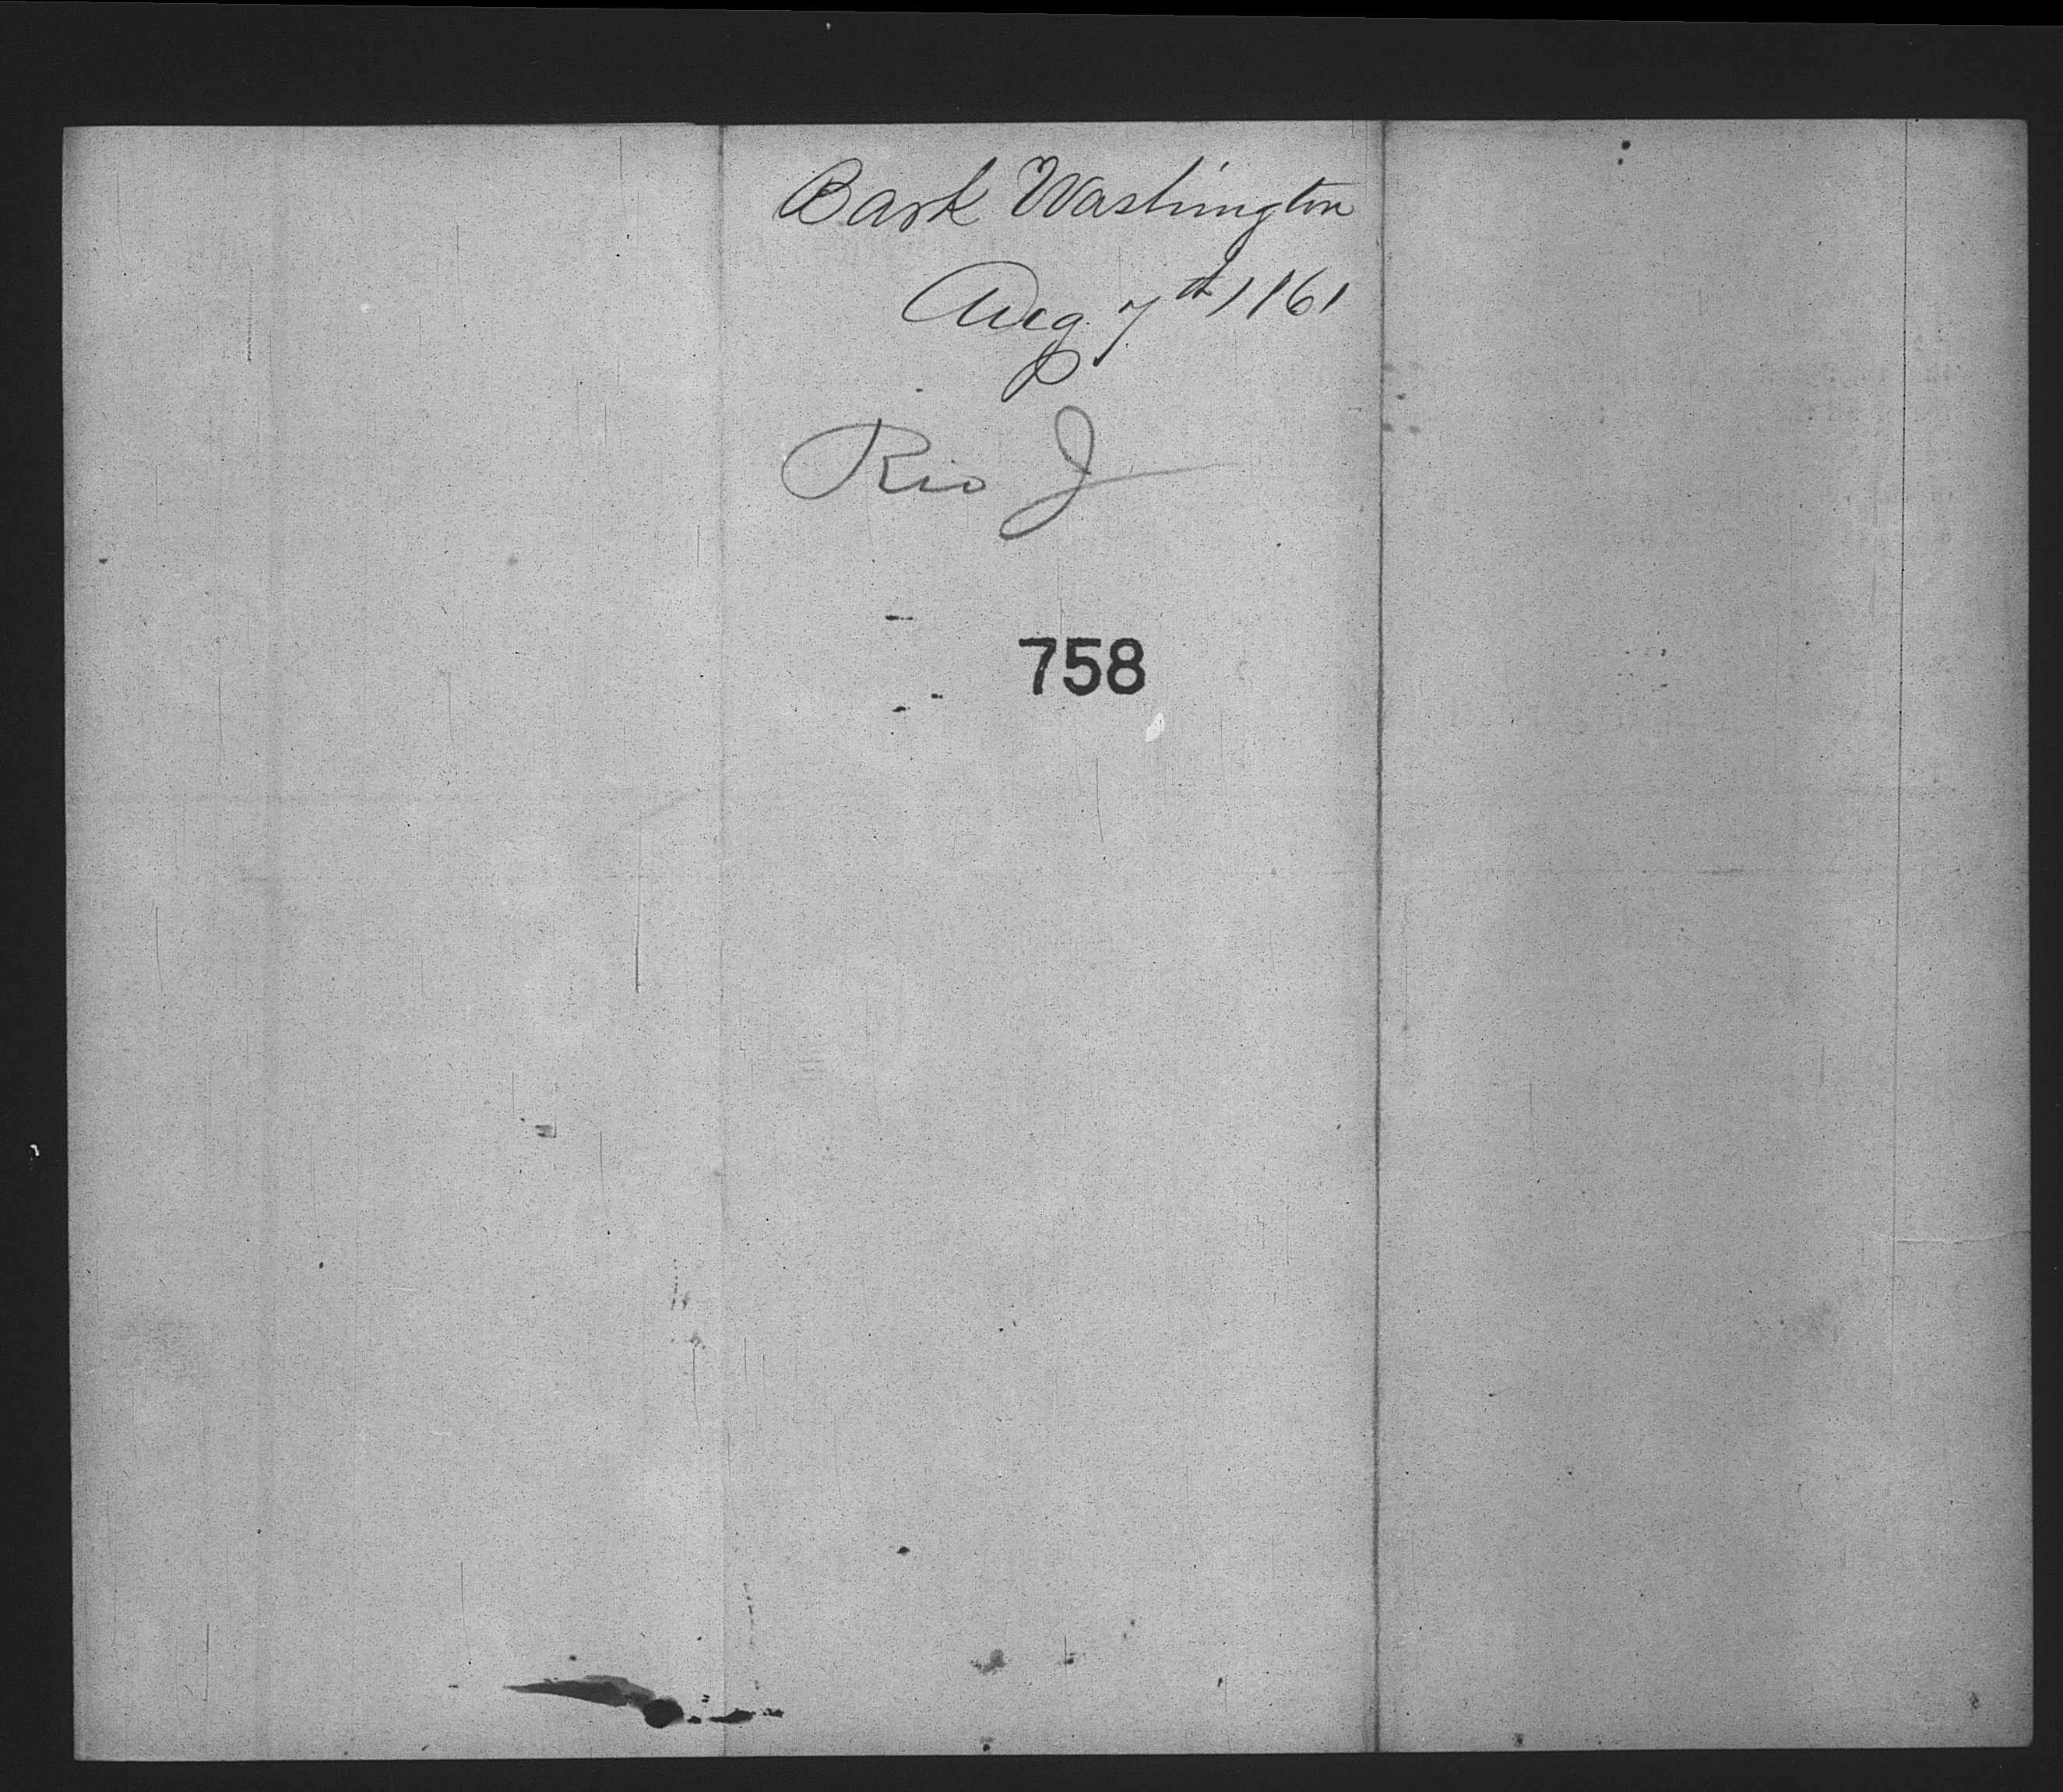 Bark Washington
Aug. 7th / 161
Rio J
758